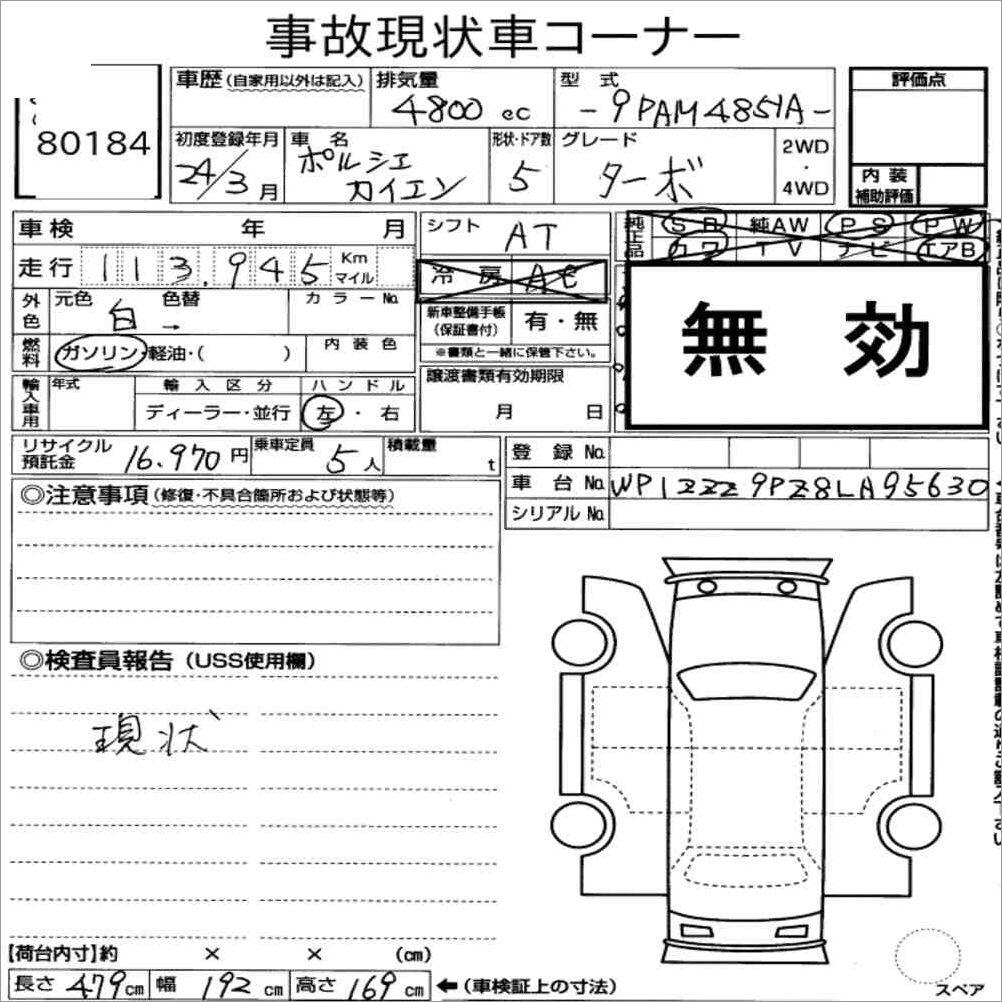 事故現状車コーナー
80184
車歴(自家用以外は記入)
排気量 4800 cc
型式 -9PAM4851A-
評価点
初度登録年月 24/3月
車名 ポルシェ カイエン
形状・ドア数 5
グレード ターボ
2WD・4WD
内装補助評価
車検 年 月
シフト AT
純正品 SR 純AW PS PW
カワ TV ナビ エアB
走行 113,945 Km マイル
冷房 AC
外色 元色 白 色替 → カラーNo.
新車整備手帳(保証書付) 有・無
※書類と一緒に保管下さい。
無効
燃料 ガソリン・軽油・( )
内装色
輸入車用 年式 輸入区分 ハンドル
ディーラー・並行 左・右
譲渡書類有効期限
月 日
リサイクル預託金 16,970円
乗車定員 5人
積載量 t
登録No.
車台No. WP1ZZZ9PZ8LA95630
シリアルNo.
◎注意事項(修復・不具合箇所および状態等)
◎検査員報告(USS使用欄)
現状
【荷台内寸】約 × × (cm)
長さ 479cm 幅 192cm 高さ 169cm ←(車検証上の寸法)
スペア